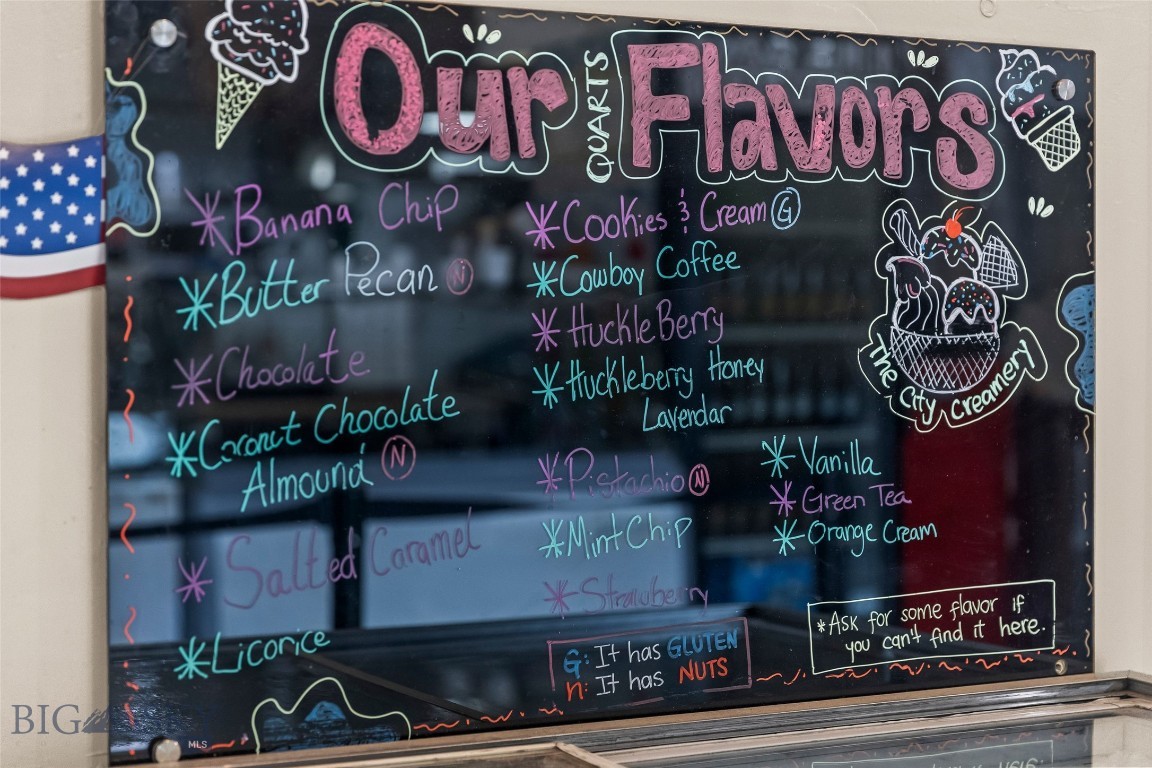 Our QUARTS Flavors
* Banana Chip
* Butter Pecan N
* Chocolate
* Coconut Chocolate
Almound N
* Salted Caramel
* Licorice
* Cookies & Cream G
* Cowboy Coffee
* HuckleBerry
* Huckleberry Honey
Lavendar
* Pistachio N
* Mint Chip
* Strawberry
* Vanilla
* Green Tea
* Orange Cream
The City Creamery
G: It has GLUTEN
n: It has NUTS
*Ask for some flavor if
you can't find it here.
BIG
MLS